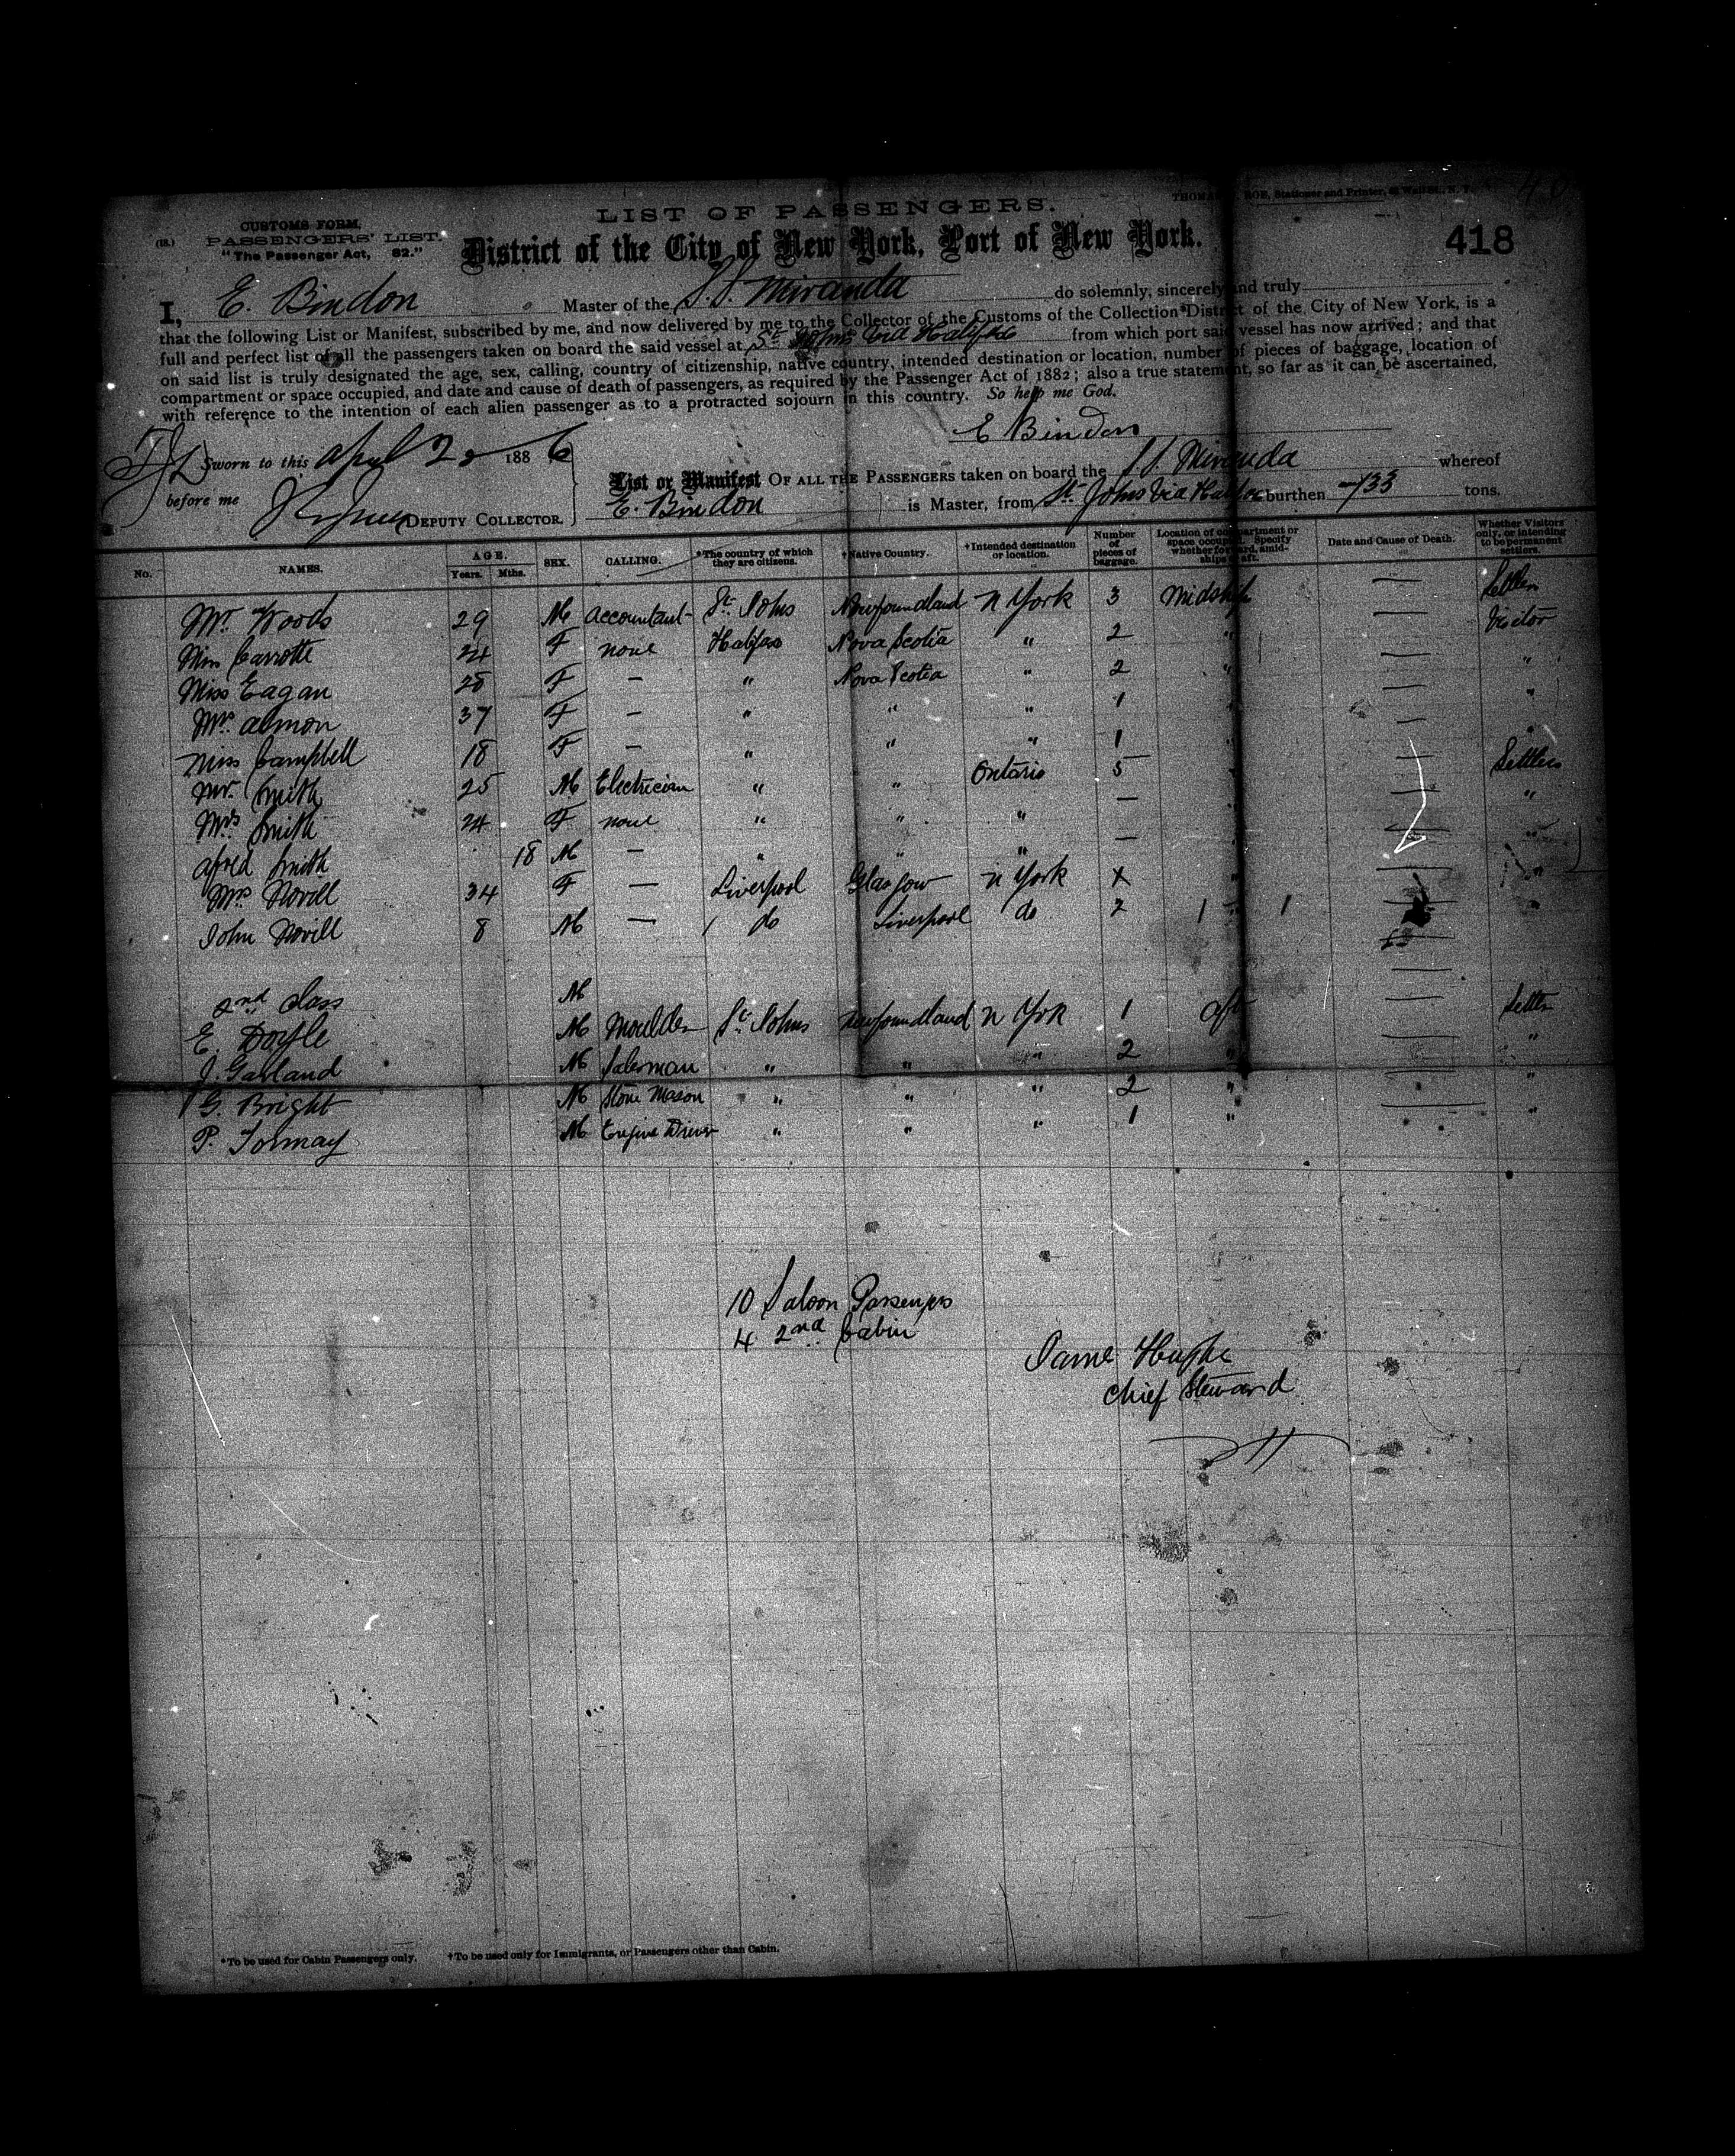 LIST OF PASSENGERS.
THOMAS ROE, Stationer and Printer, Wall St., N. Y.
(18.) CUSTOMS FORM.
PASSENGERS' LIST.
"The Passenger Act, 82."
District of the City of New York, Port of New York.
418
I, E. Bindon Master of the S.S. Miranda do solemnly, sincerely and truly
that the following List or Manifest, subscribed by me, and now delivered by me to the Collector of the Customs of the Collection District of the City of New York, is a
full and perfect list of all the passengers taken on board the said vessel at St Johns via Halifax from which port said vessel has now arrived; and that
on said list is truly designated the age, sex, calling, country of citizenship, native country, intended destination or location, number of pieces of baggage, location of
compartment or space occupied, and date and cause of death of passengers, as required by the Passenger Act of 1882; also a true statement, so far as it can be ascertained,
with reference to the intention of each alien passenger as to a protracted sojourn in this country. So help me God.
E Bindon
Sworn to this April 2 1886
before me DEPUTY COLLECTOR.
List or Manifest OF ALL THE PASSENGERS taken on board the S.S. Miranda whereof
E. Bindon is Master, from St. Johns via Halifax burthen 733 tons.
No. NAMES. AGE. Years. Mths. SEX. CALLING. *The country of which they are citizens. †Native Country. †Intended destination or location. Number of pieces of baggage. Location of compartment or space occupied. Specify whether forward, amidships or aft. Date and Cause of Death. Whether Visitors only, or intending to be permanent settlers.
Mr. Woods 29 M Accountant St. Johns Newfoundland N York 3 Midship — Settler
Miss Carrotte 24 F none Halifax Nova Scotia " 2 " — Visitor
Miss Eagan 28 F — " Nova Scotia " 2 " — "
Mrs Almon 37 F — " " " 1 " — "
Miss Campbell 18 F — " " " 1 " — "
Mr. Smith 25 M Electrician " " Ontario 5 " — Settlers
Mrs Smith 24 F none " " " — " — "
Alfred Smith 18 M — " " " — " — "
Mrs Novill 34 F — Liverpool Glasgow N York X " — "
John Novill 8 M — do Liverpool do 2 " — "
2nd Class M
E. Doyle M Moulder St. Johns Newfoundland N York 1 aft — Settler
J. Garland M Salesman " " " 2 " — "
G. Bright M Stone Mason " " " 2 " — "
P. Tormay M Engine Driver " " " 1 " — "
10 Saloon Passengers
4 2nd Cabin
Chief Steward
*To be used for Cabin Passengers only. †To be used only for Immigrants, or Passengers other than Cabin.